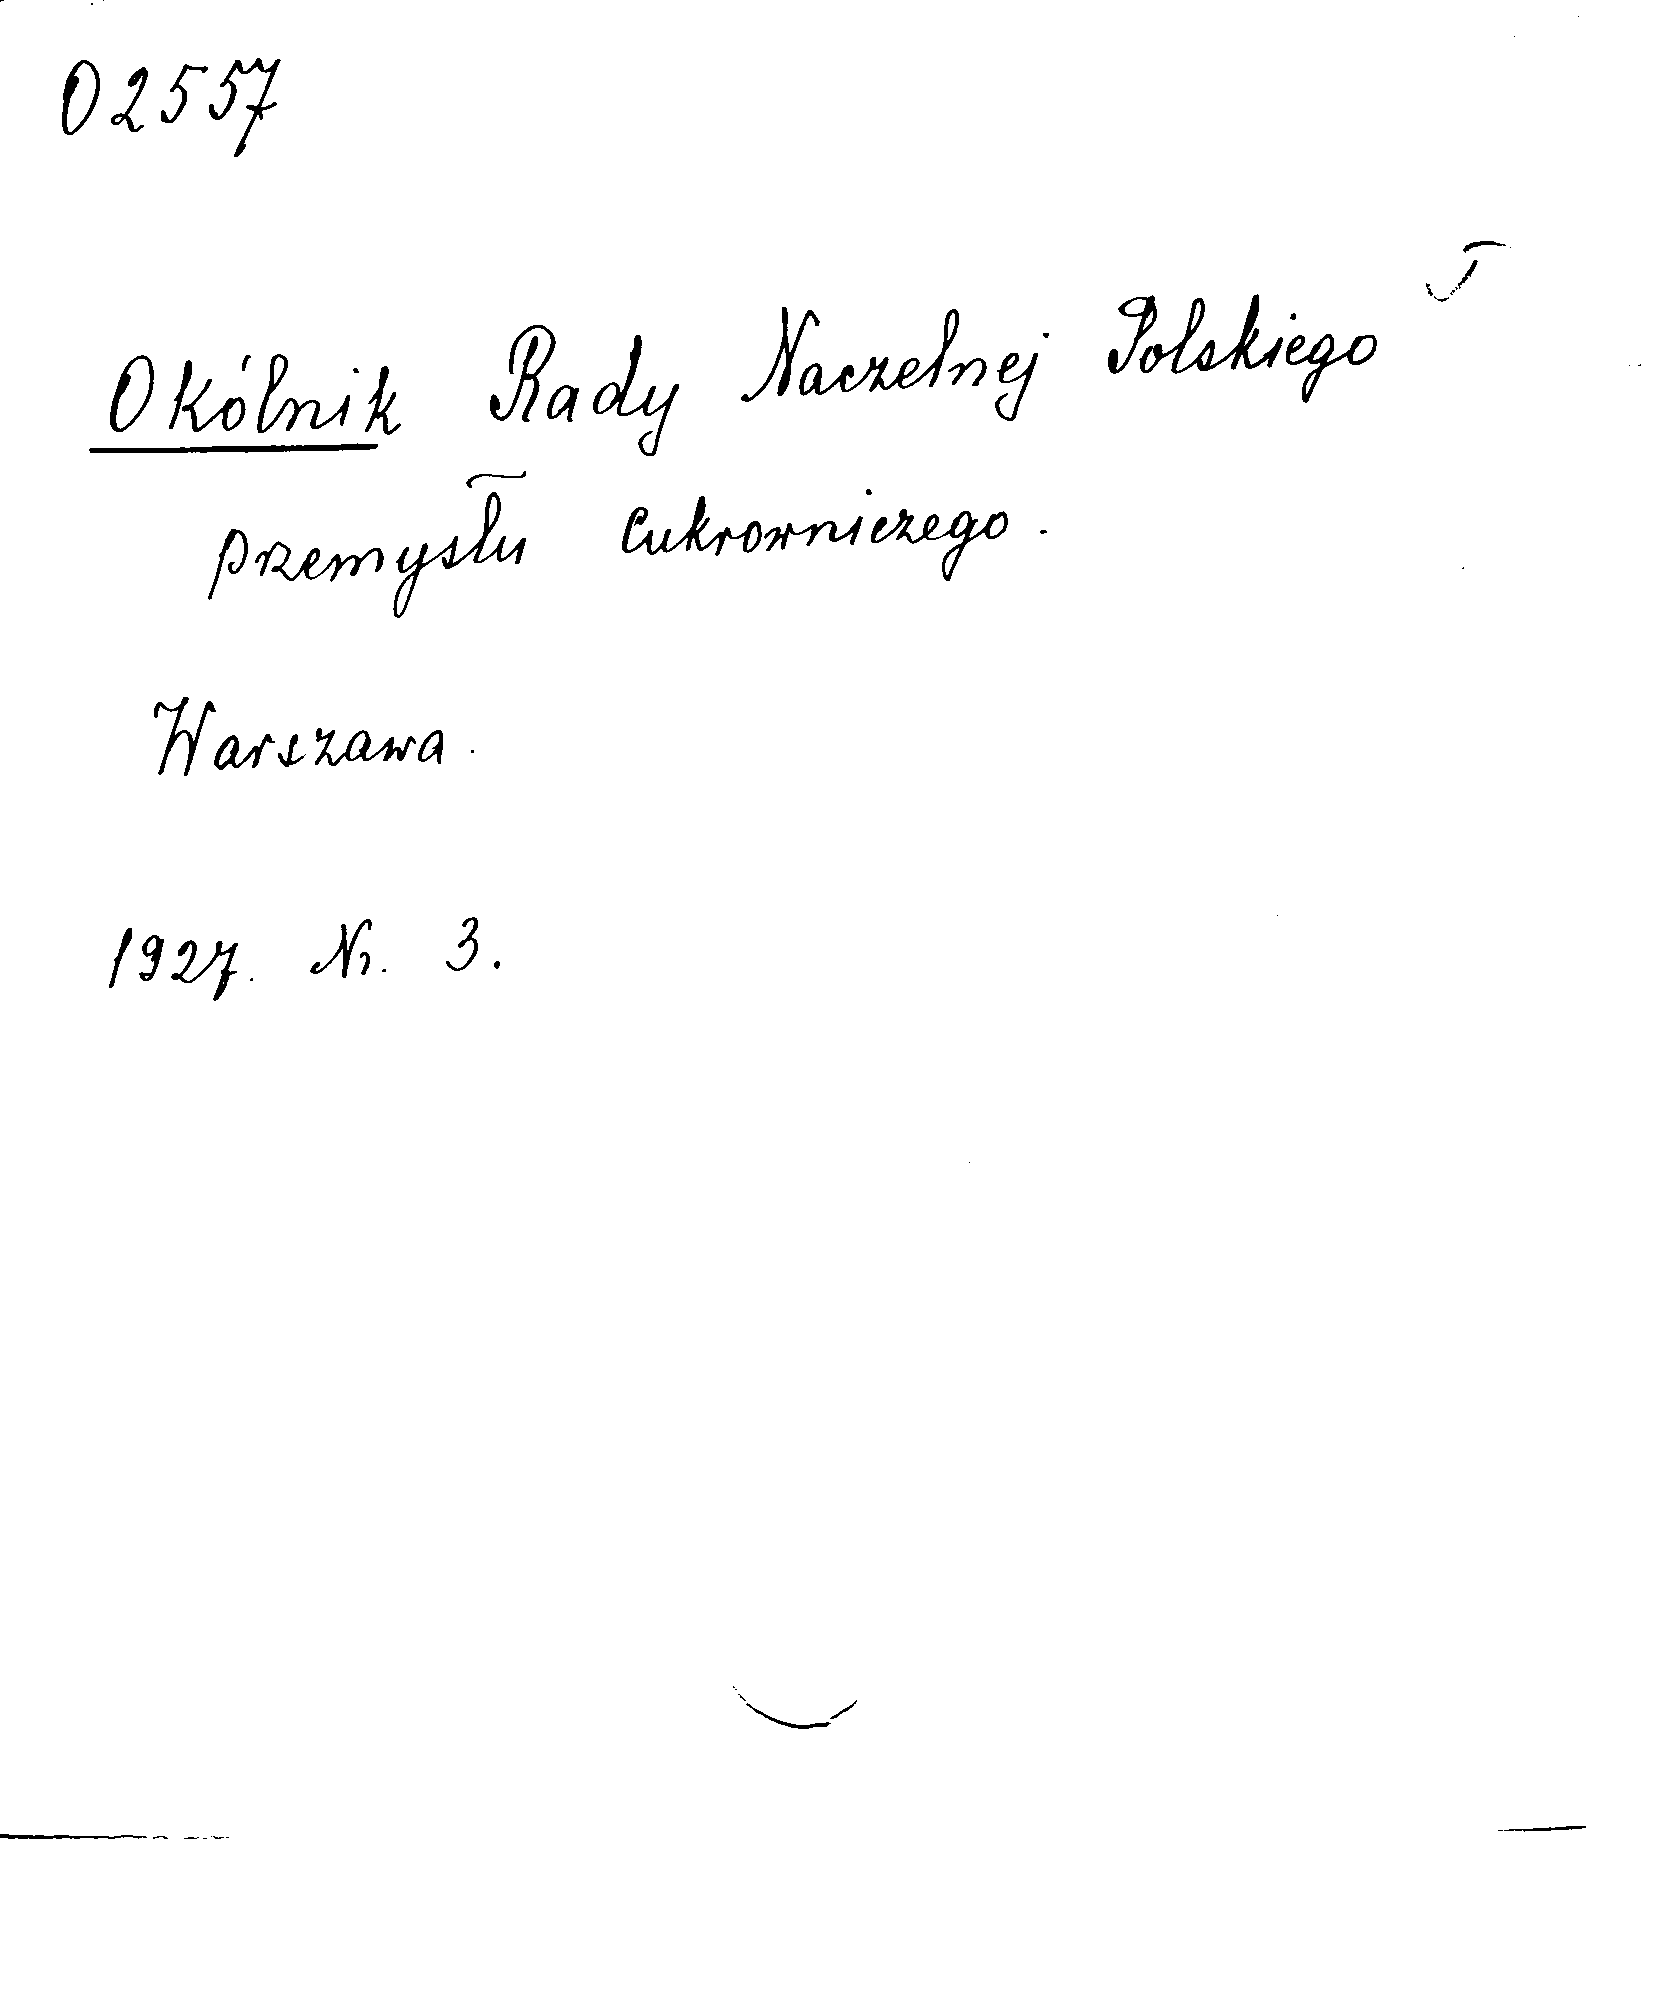 02557
Okólnik Rady Naczelnej Polskiego
przemysłu Cukrowniczego.
Warszawa.
1927. Nr. 3.